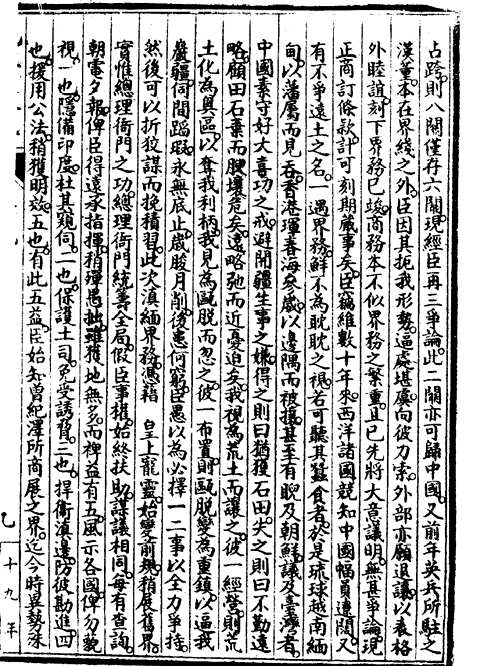 占踞則八關僅存六關現經臣再三爭論此二關亦可歸中國又前年英兵所駐之
漢董本在界綫之外臣因其扼我形勢逼處堪虞向彼力索外部亦願退讓以表格
外睦誼刻下界務已竣商務本不似界務之繁重且已先將大意議明無甚爭論現
正商訂條款計可刻期蕆事矣臣竊維數十年來西洋諸國競知中國幅員遼闊又
有不爭遠土之名一遇界務鮮不為耽耽之視若可聽其蠶食者於是琉球越南緬
甸以藩屬而見吞香港琿春海參崴以邊隅而被攘甚至有睨及朝鮮議及臺灣者
中國素守好大喜功之戒避開疆生事之嫌得之則曰猶獲石田失之則曰不勤遠
略顧田石棄而腴壤危矣遠略弛而近憂迫矣我視為荒土而讓之彼一經營則荒
土化為奧區以奪我利柄我見為甌脫而忽之彼一布置則甌脫變為重鎮以逼我
巖疆伺間蹈瑕永無底止歲朘月削後患何窮臣愚以為必擇一二事以全力爭持
然後可以折狡謀而挽積習此次滇緬界務憑藉 皇上寵靈始變前規稍展舊界
實惟總理衙門之功總理衙門統籌全局假臣事權始終扶助謀議相同每有查詢
朝電夕報俾臣得遠承指揮稍殫愚拙雖獲地無多而裨益有五風示各國俾勿藐
視一也隱備印度杜其窺伺二也保護土司免受誘脅三也捍衛滇邊防彼勘進四
也援用公法稍獲明效五也有此五益臣始知曾紀澤所商展之界迄今時異勢殊
乙
十九年